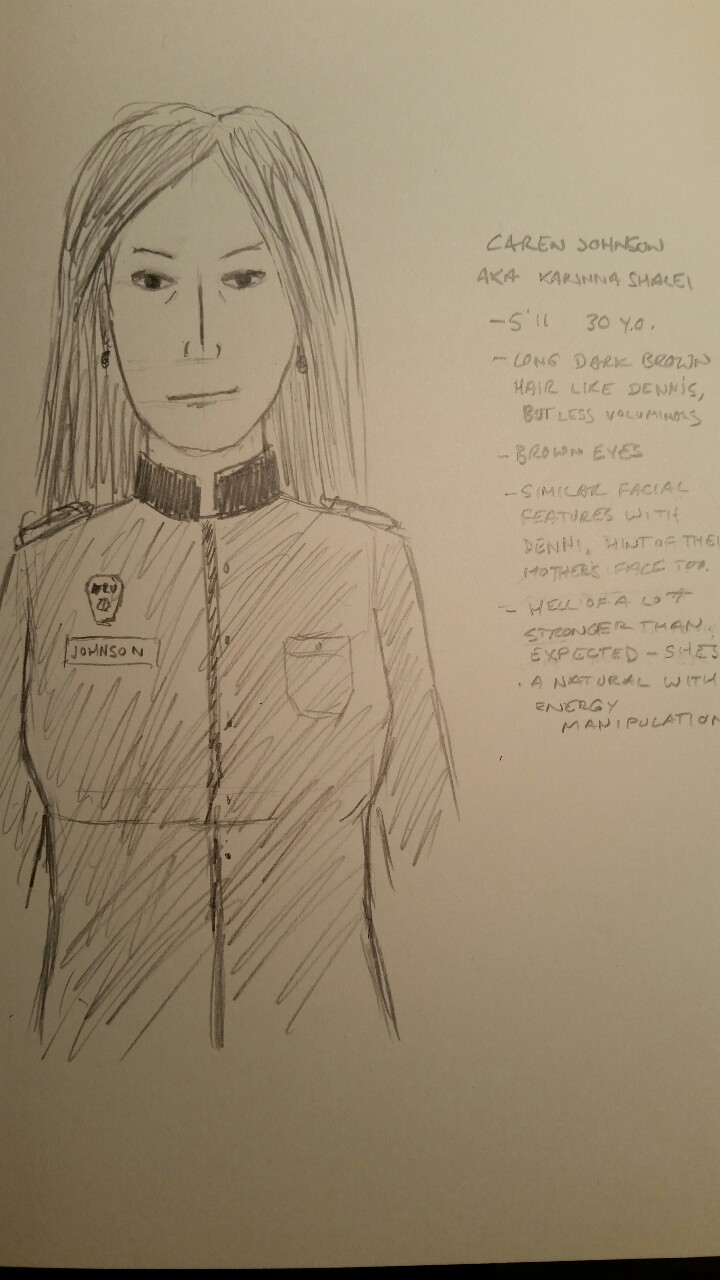 CAREN JOHNSON
AKA KARINNA SHALEI
- 5'11 30 Y.O.
- LONG DARK BROWN
HAIR LIKE DENNI'S,
BUT LESS VOLUMINOUS
- BROWN EYES
- SIMILAR FACIAL
FEATURES WITH
DENNI, HINT OF THEI
MOTHER'S FACE TOO.
- HELL OF A LOT
STRONGER THAN
EXPECTED - SHE'S
A NATURAL WITH
ENERGY
MANIPULATION
JOHNSON